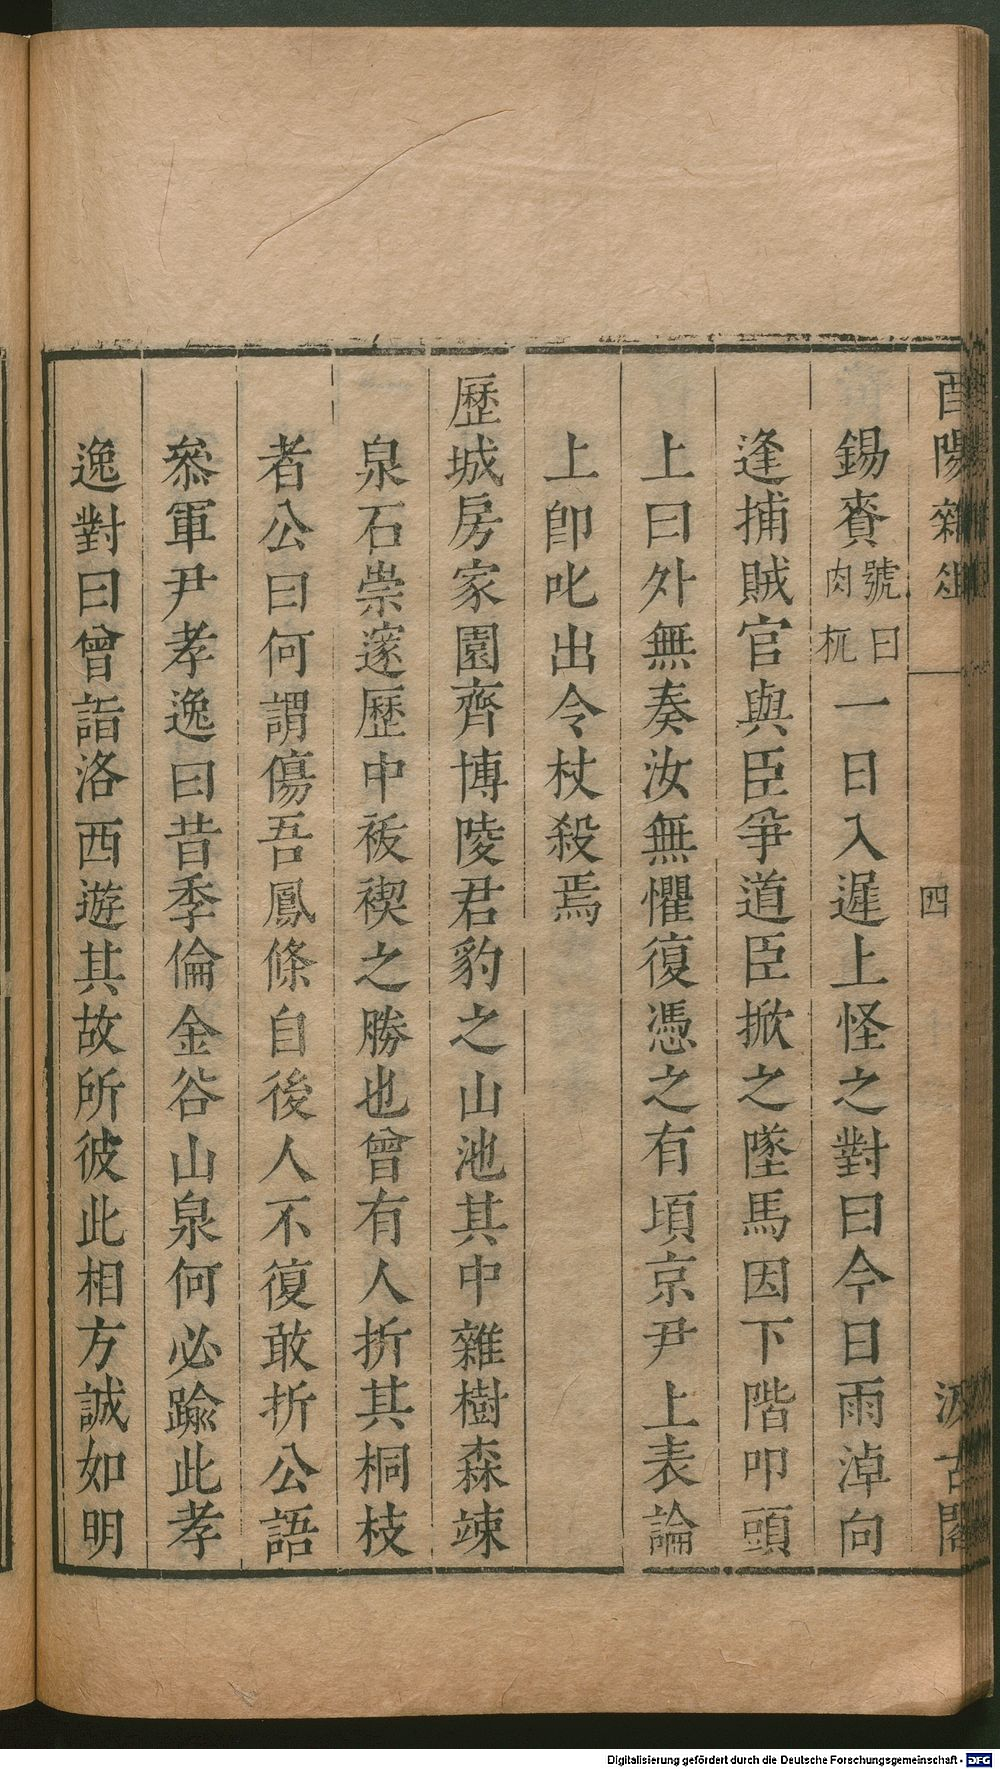 酉陽雜俎
四
汲古閣
錫賚號曰肉杌一日入遲上怪之對曰今日雨淖向
逢捕賊官與臣爭道臣掀之墜馬因下階叩頭
上曰外無奏汝無懼復憑之有頃京尹上表論
上卽叱出令杖殺焉
歷城房家園齊博陵君豹之山池其中雜樹森竦
泉石崇邃歷中袚禊之勝也曾有人折其桐枝
者公曰何謂傷吾鳳條自後人不復敢折公語
叅軍尹孝逸曰昔季倫金谷山泉何必踰此孝
逸對曰曾詣洛西遊其故所彼此相方誠如明
Digitalisierung gefördert durch die Deutsche Forschungsgemeinschaft - DFG